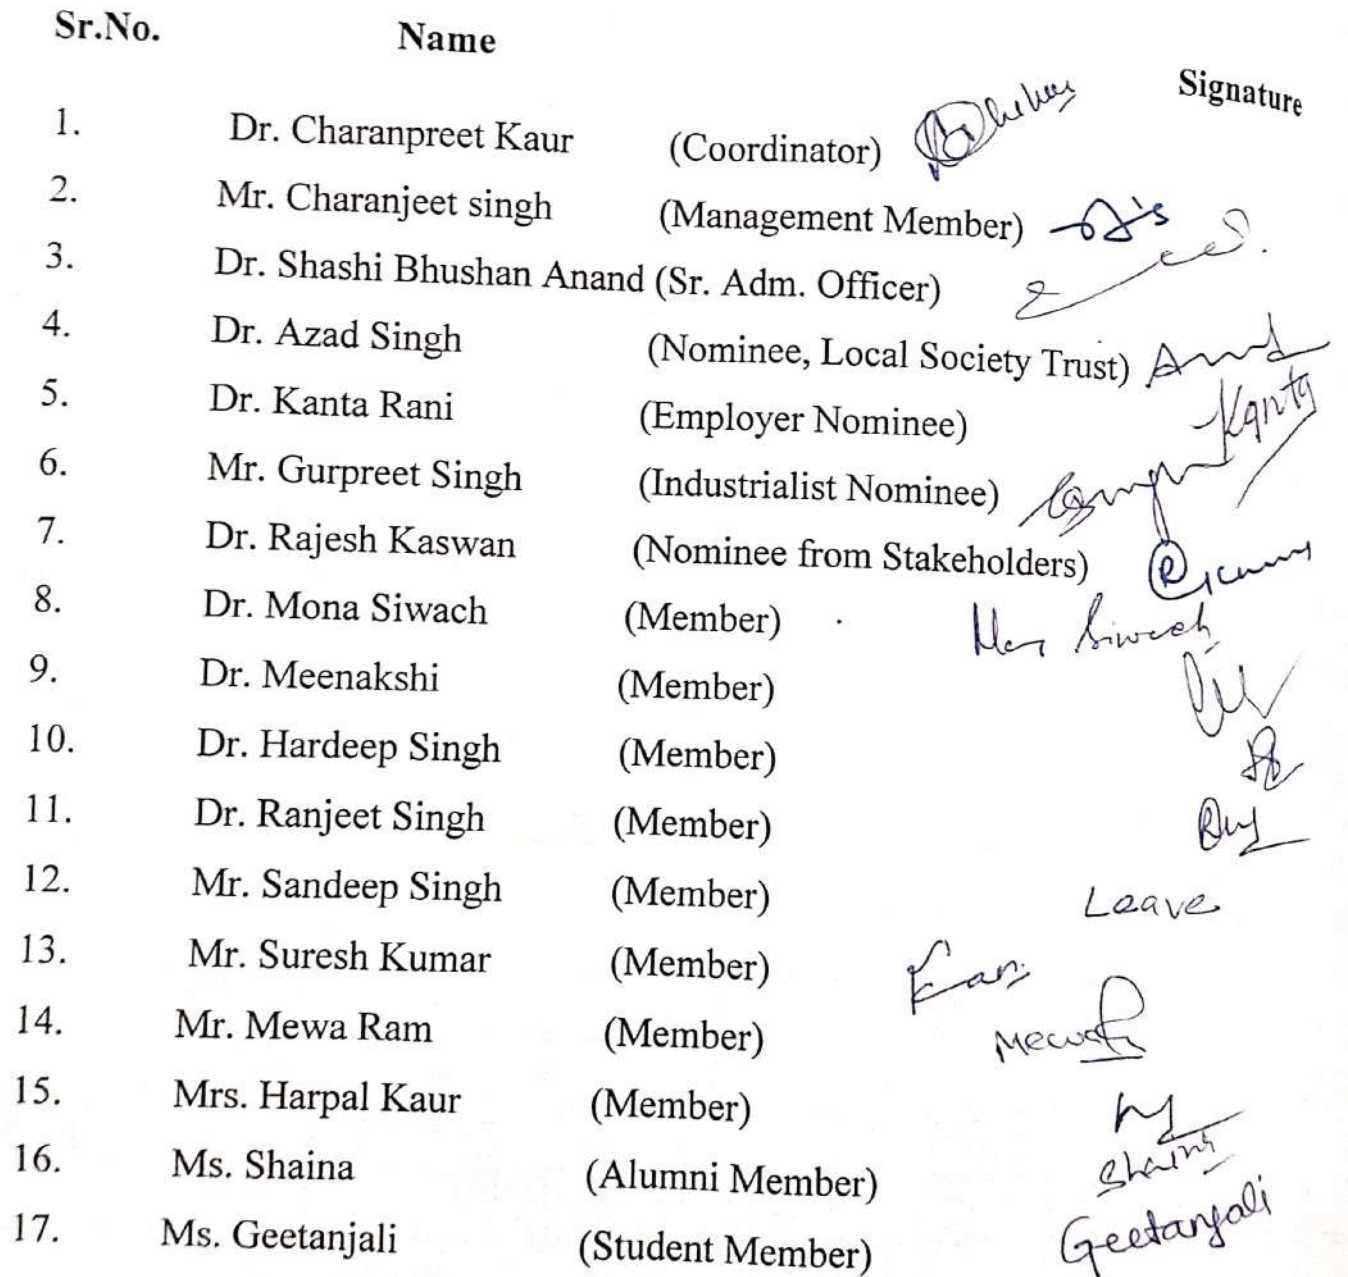 Sr.No. Name Signature
1. Dr. Charanpreet Kaur (Coordinator)
2. Mr. Charanjeet singh (Management Member)
3. Dr. Shashi Bhushan Anand (Sr. Adm. Officer)
4. Dr. Azad Singh (Nominee, Local Society Trust)
5. Dr. Kanta Rani (Employer Nominee) Kanta
6. Mr. Gurpreet Singh (Industrialist Nominee)
7. Dr. Rajesh Kaswan (Nominee from Stakeholders)
8. Dr. Mona Siwach (Member) Siwach
9. Dr. Meenakshi (Member)
10. Dr. Hardeep Singh (Member)
11. Dr. Ranjeet Singh (Member)
12. Mr. Sandeep Singh (Member) Leave
13. Mr. Suresh Kumar (Member)
14. Mr. Mewa Ram (Member)
15. Mrs. Harpal Kaur (Member)
16. Ms. Shaina (Alumni Member) Shaina
17. Ms. Geetanjali (Student Member) Geetanjali